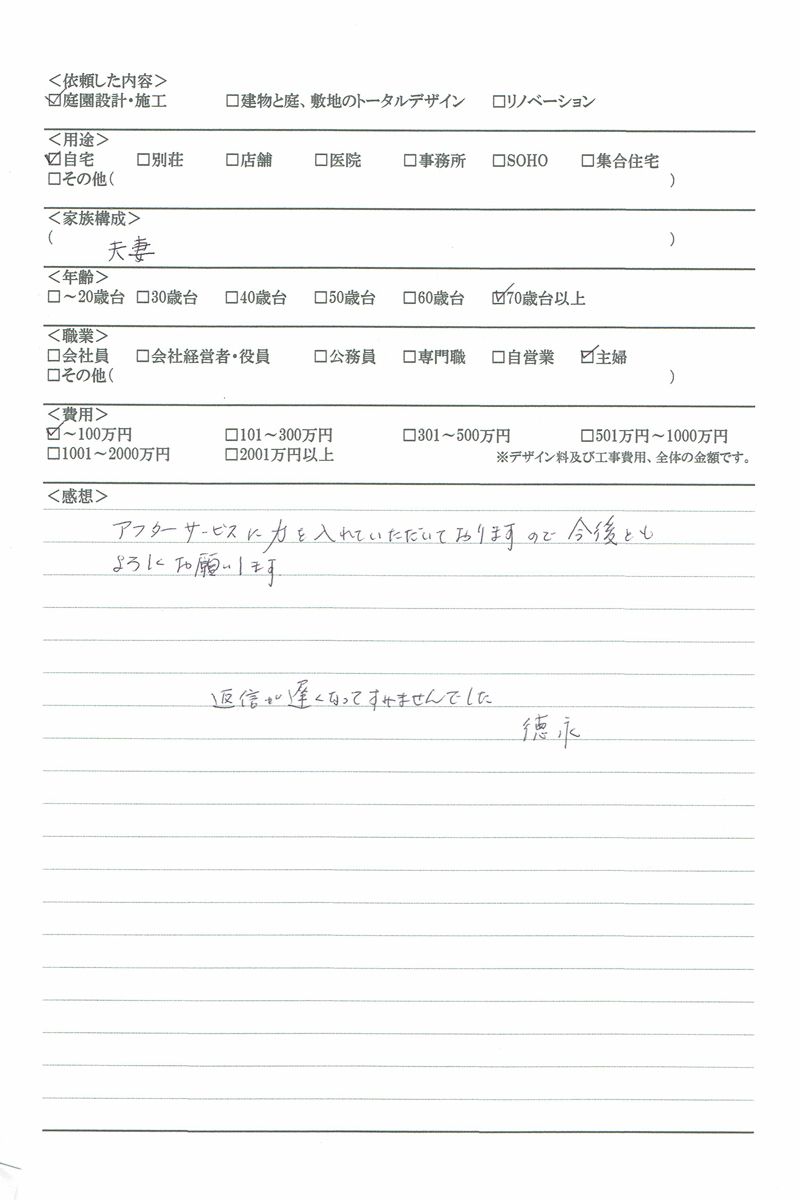 ＜依頼した内容＞
☑庭園設計・施工 □建物と庭、敷地のトータルデザイン □リノベーション
＜用途＞
☑自宅 □別荘 □店舗 □医院 □事務所 □SOHO □集合住宅
□その他( )
＜家族構成＞
( 夫妻 )
＜年齢＞
□～20歳台 □30歳台 □40歳台 □50歳台 □60歳台 ☑70歳台以上
＜職業＞
□会社員 □会社経営者・役員 □公務員 □専門職 □自営業 ☑主婦
□その他( )
＜費用＞
☑～100万円 □101～300万円 □301～500万円 □501万円～1000万円
□1001～2000万円 □2001万円以上 ※デザイン料及び工事費用、全体の金額です。
＜感想＞
アフターサービスに力を入れていただいておりますので今後とも
よろしくお願いします.
返信が遅くなってすみませんでした
徳永